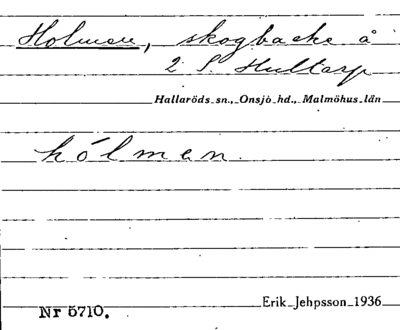 Holmen, skogbacke å
2 S. Hultarp
Hallaröds sn., Onsjö hd., Malmöhus län
hólmen.
Erik Jehpsson 1936
Nr 5710.